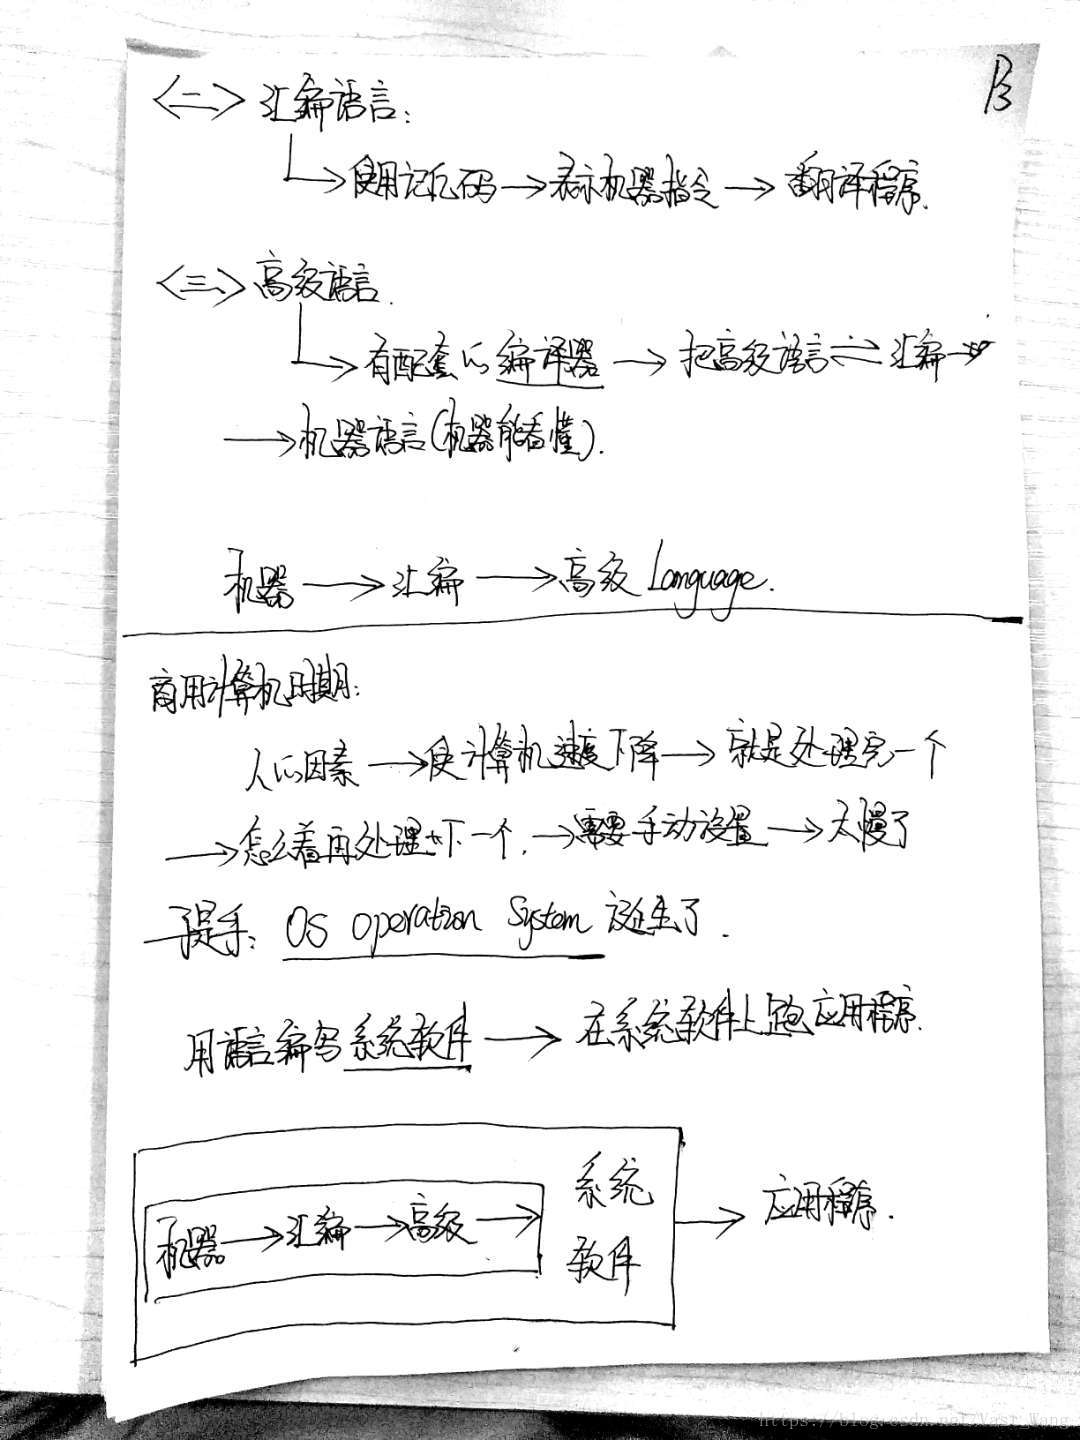 P3
<二> 汇编语言:
→使用记忆码→表示机器指令→翻译程序.
<三> 高级语言.
→有配套的编译器→把高级语言⇌汇编→
→机器语言(机器能看懂).
机器→汇编→高级 Language.
商用计算机时期:
人的因素→使计算机速度下降→就是处理完一个
→怎么着再处理 下一个.→需要手动设置→太慢了
提手: OS operation System 诞生了.
用语言编写系统软件→在系统软件上跑应用程序.
机器→汇编→高级→系统软件→应用程序.
https://blog.csdn.net/Vast_Wang